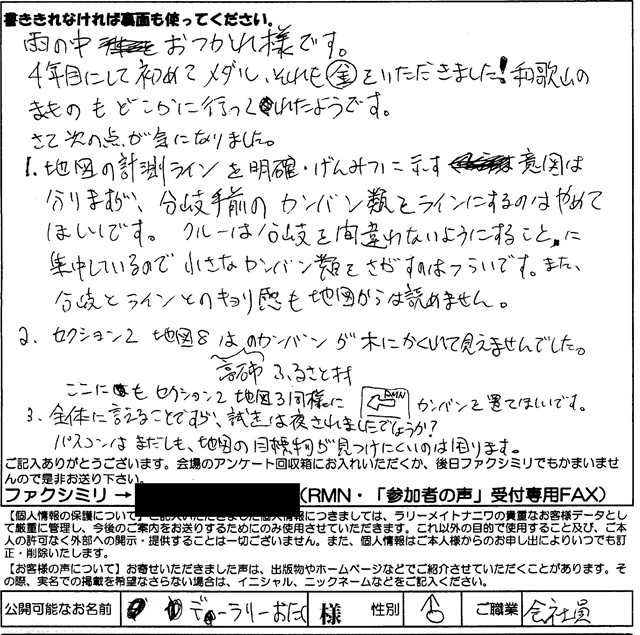 書ききれなければ裏面も使ってください。
雨の中 おつかれ様です。
4年目にして初めてメダル、それも金をいただきました!和歌山の
まものもどこかに行ってくれたようです。
さて次の点が気になりました。
1. 地図の計測ラインを明確・げんみつに示す 意図は
分りますが、分岐手前のカンバン類をラインにするのはやめて
ほしいです。クルーは分岐を間違わないようにすることに
集中しているので小さなカンバン類をさがすのはつらいです。また、
分岐とラインとのキョリ感も地図からは読めません。
2. セクション2 地図8 は のカンバンが木にかくれて見えませんでした。
高師 ふるさと村
ここにも セクション2 地図3同様に RMN カンバンを置てほしいです。
3. 全体に言えることですが、試走は夜されましたでしょうか?
パスコンはまだしも、地図の目標物が見つけにくいのは困ります。
ご記入ありがとうございます。会場のアンケート回収箱にお入れいただくか、後日ファクシミリでもかまいませ
んので是非お送り下さい。
ファクシミリ → (RMN・「参加者の声」受付専用FAX)
【個人情報の保護について】ご記入いただきました個人情報につきましては、ラリーメイトナニワの貴重なお客様データとし
て厳重に管理し、今後のご案内をお送りするためにのみ使用させていただきます。これ以外の目的で使用すること及び、ご本
人の許可なく外部への開示・提供することは一切ございません。また、個人情報はご本人様からのお申し出によりいつでも訂
正・削除いたします。
【お客様の声について】お寄せいただきました声は、出版物やホームページなどでご紹介させていただくことがあります。そ
の際、実名での掲載を希望なさらない場合は、イニシャル、ニックネームなどをご記入ください。
公開可能なお名前 デューラリーおたく 様 性別 ♂ ご職業 会社員